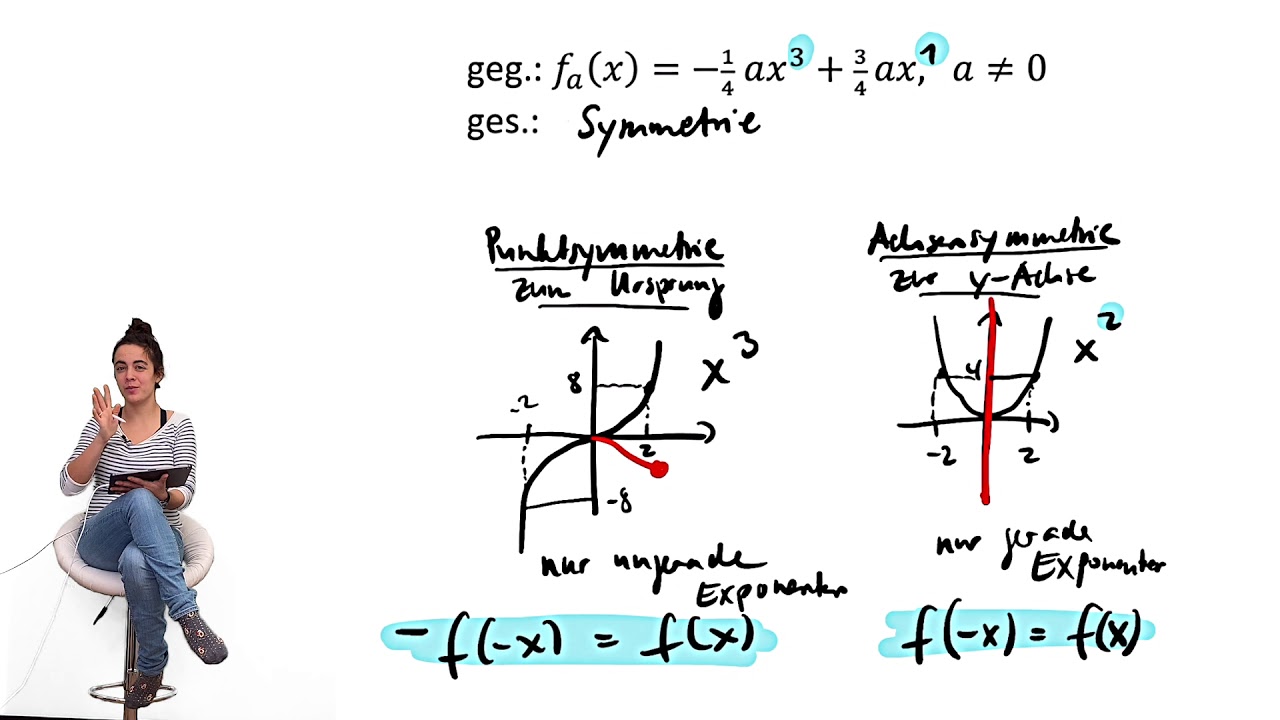 geg.: fₐ(x) = −¼ ax³ + ¾ ax,¹ a ≠ 0
ges.: Symmetrie
Punktsymmetrie
zum Ursprung
x³
8
-2
2
-8
nur ungerade
Exponenten
-f(-x) = f(x)
Achsensymmetrie
zur y-Achse
x²
4
-2
2
nur gerade
Exponenten
f(-x) = f(x)